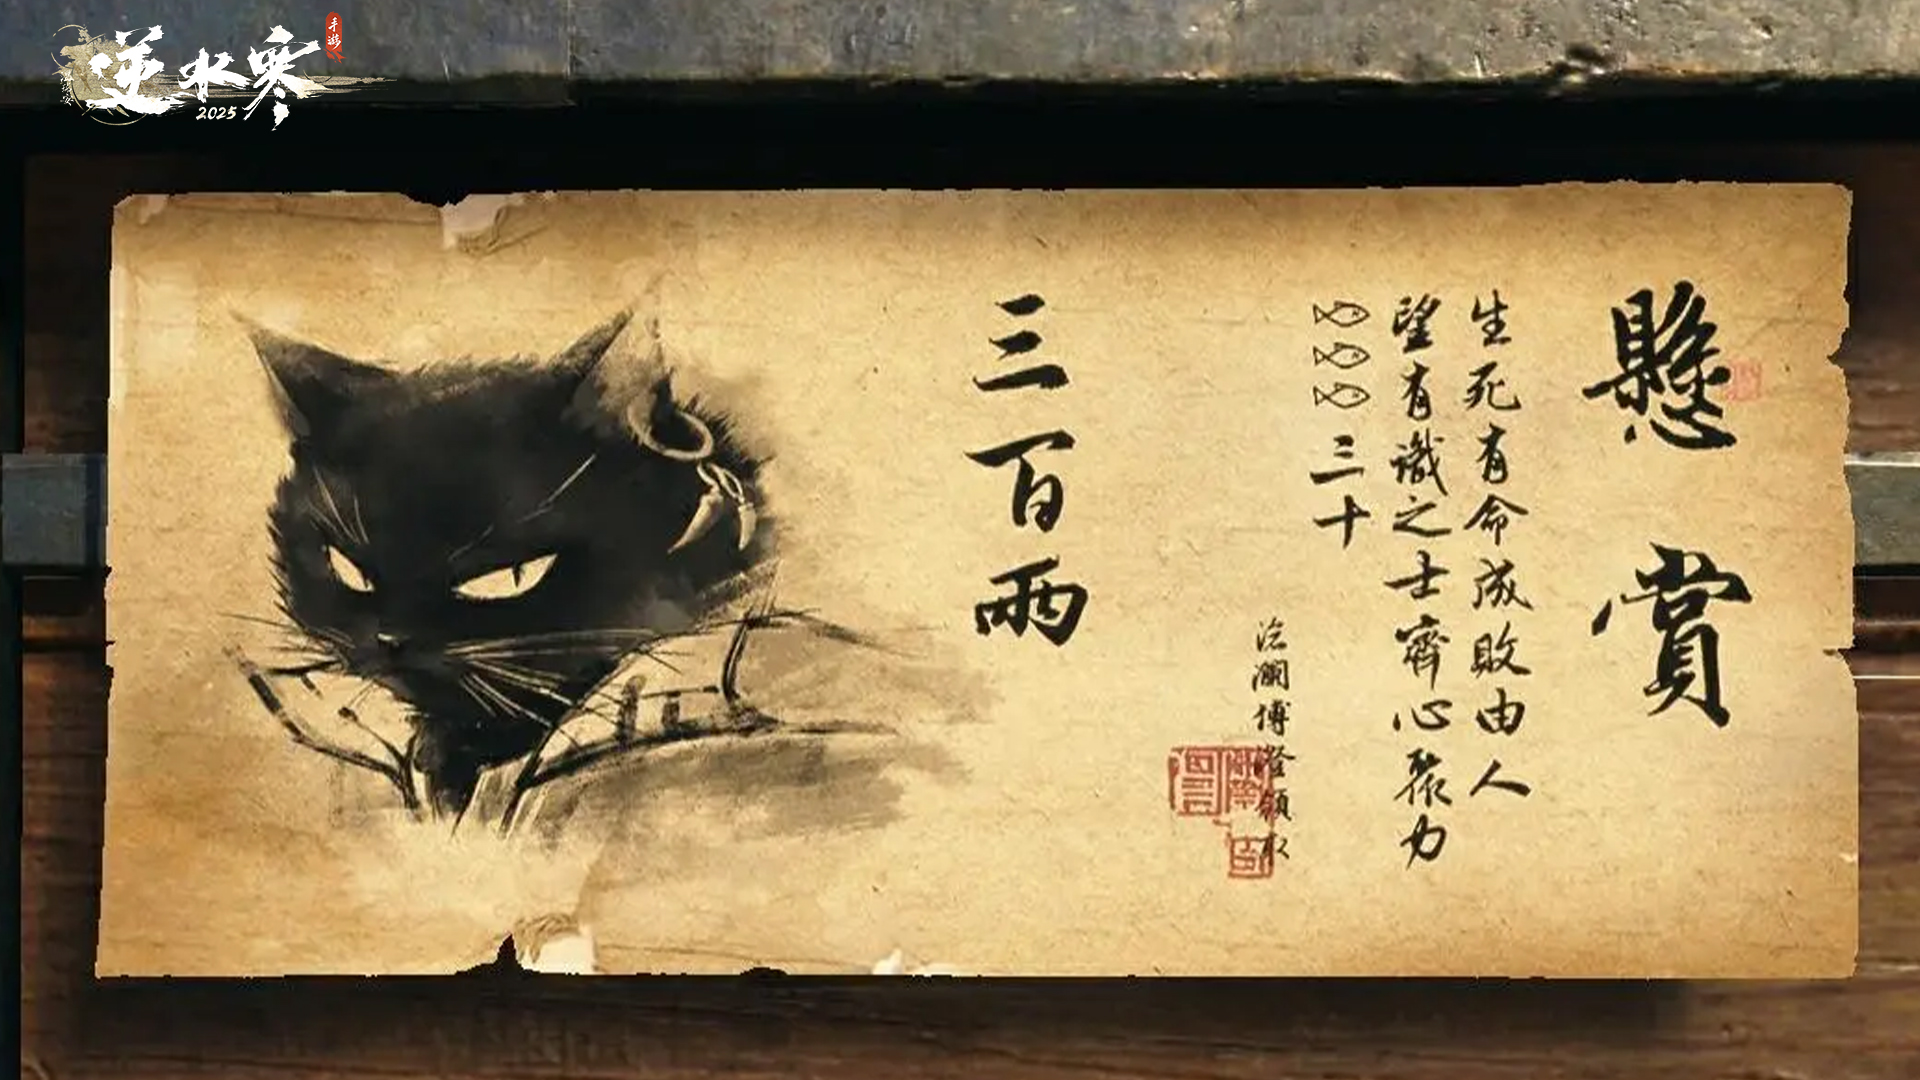 逆水寒
手游
2025
懸賞
生死有命成敗由人
望有識之士齊心聚力
三十
三百兩